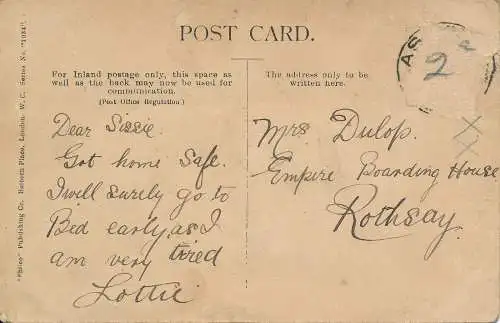 POST CARD.
For Inland postage only, this space as
well as the back may now be used for
communication.
(Post Office Regulation)
Dear Sissie.
Got home safe.
I will surely go to
Bed early, as I
am very tired
Lottie
The address only to be
written here.
Mrs Dulop.
Empire Boarding House
Rothsay.
AS
2
XX
"Philco" Publishing Co. Holborn Place, London, W. C. Series No. "1034".